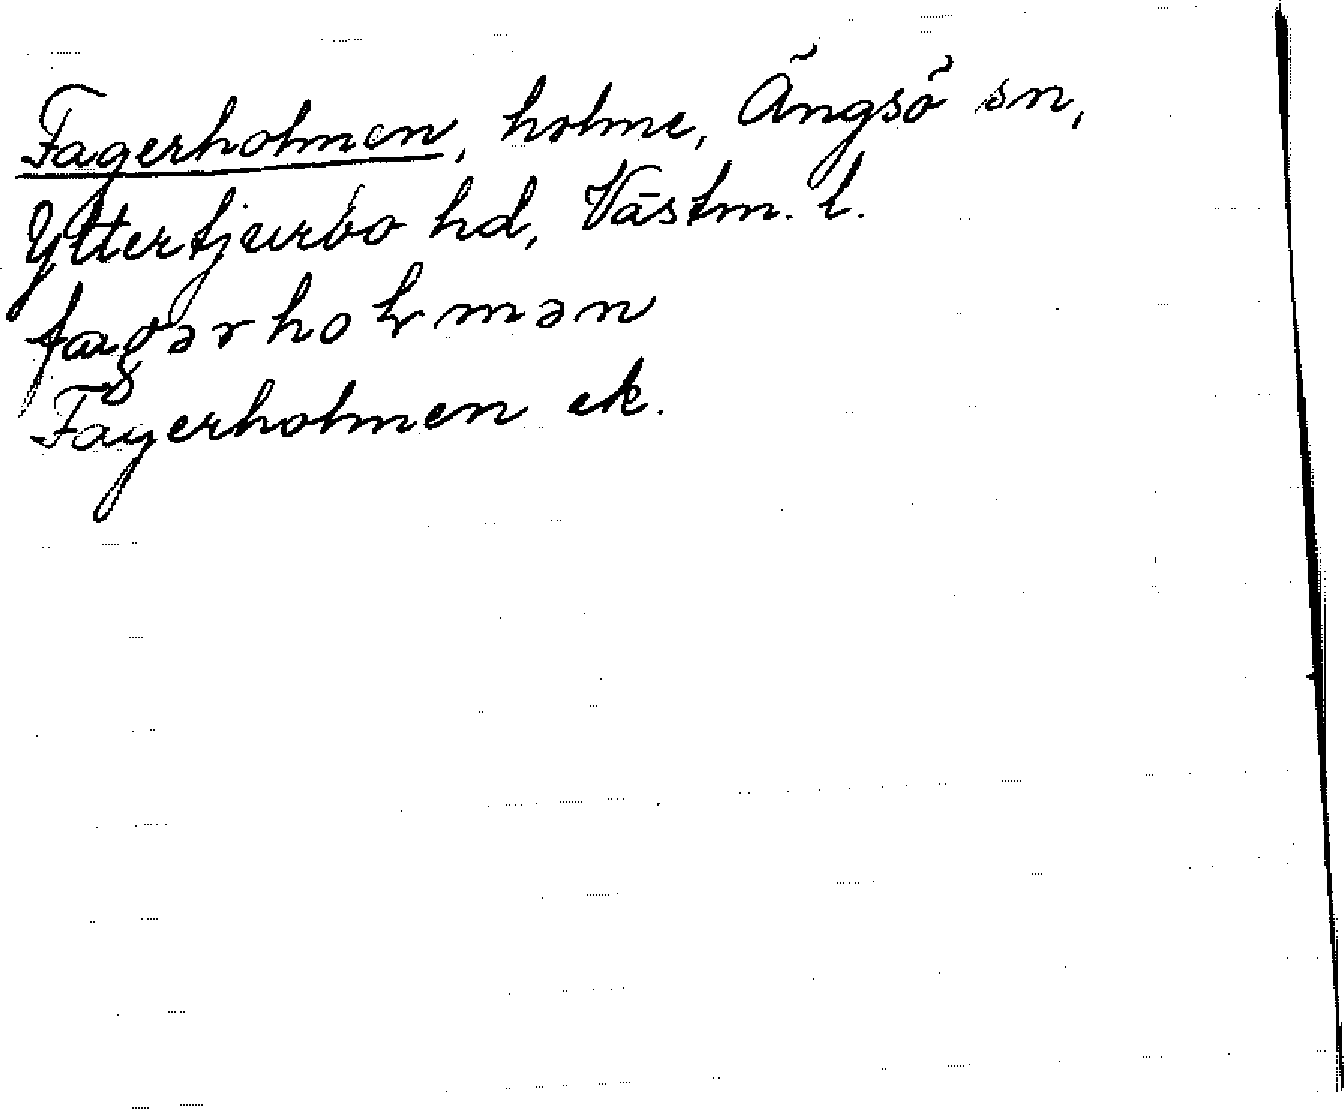 Fagerholmen, holme, Ängsö sn,
Yttertjurbo hd, Västm. l.
fagərhoɫmən
Fagerholmen ek.